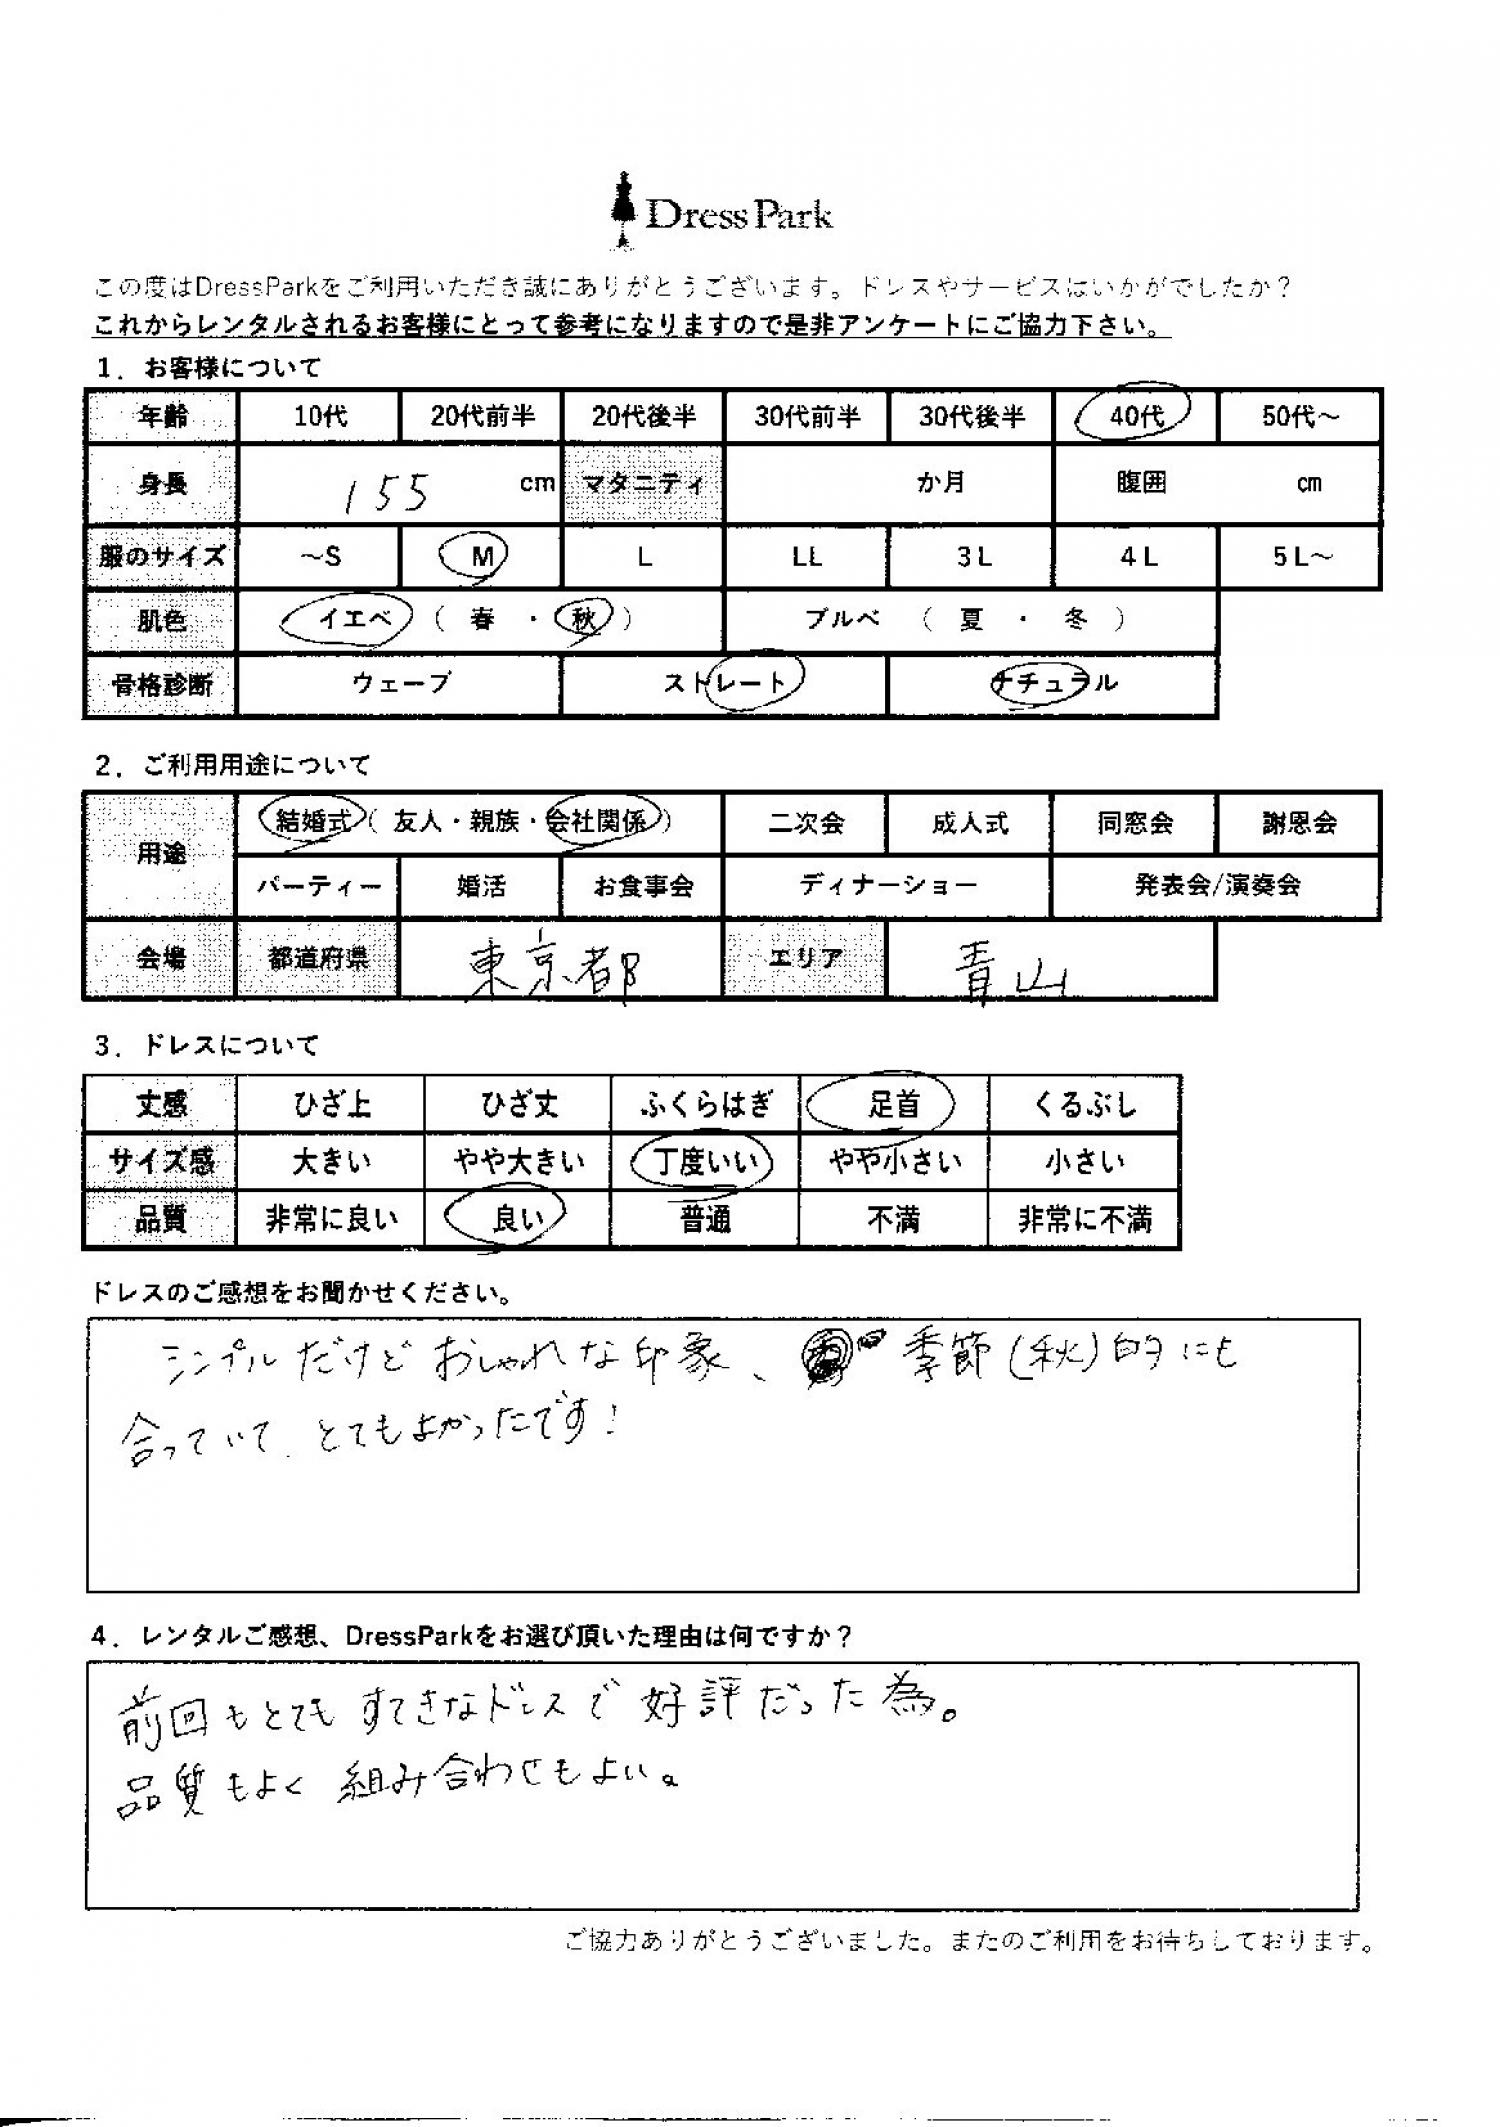 Dress Park
この度はDressParkをご利用いただき誠にありがとうございます。ドレスやサービスはいかがでしたか？
これからレンタルされるお客様にとって参考になりますので是非アンケートにご協力下さい。
1．お客様について
年齢 10代 20代前半 20代後半 30代前半 30代後半 40代 50代～
身長 155 cm マタニティ か月 腹囲 cm
服のサイズ ～S M L LL 3L 4L 5L～
肌色 イエベ（ 春 ・ 秋 ） ブルベ （ 夏 ・ 冬 ）
骨格診断 ウェーブ ストレート ナチュラル
2．ご利用用途について
用途 結婚式（ 友人・親族・会社関係 ） 二次会 成人式 同窓会 謝恩会
パーティー 婚活 お食事会 ディナーショー 発表会/演奏会
会場 都道府県 東京都 エリア 青山
3．ドレスについて
丈感 ひざ上 ひざ丈 ふくらはぎ 足首 くるぶし
サイズ感 大きい やや大きい 丁度いい やや小さい 小さい
品質 非常に良い 良い 普通 不満 非常に不満
ドレスのご感想をお聞かせください。
シンプルだけど おしゃれな印象、 季節(秋)的にも
合っていて、とてもよかったです！
4．レンタルご感想、DressParkをお選び頂いた理由は何ですか？
前回もとても すてきなドレスで 好評だった為。
品質もよく 組み合わせもよい。
ご協力ありがとうございました。またのご利用をお待ちしております。